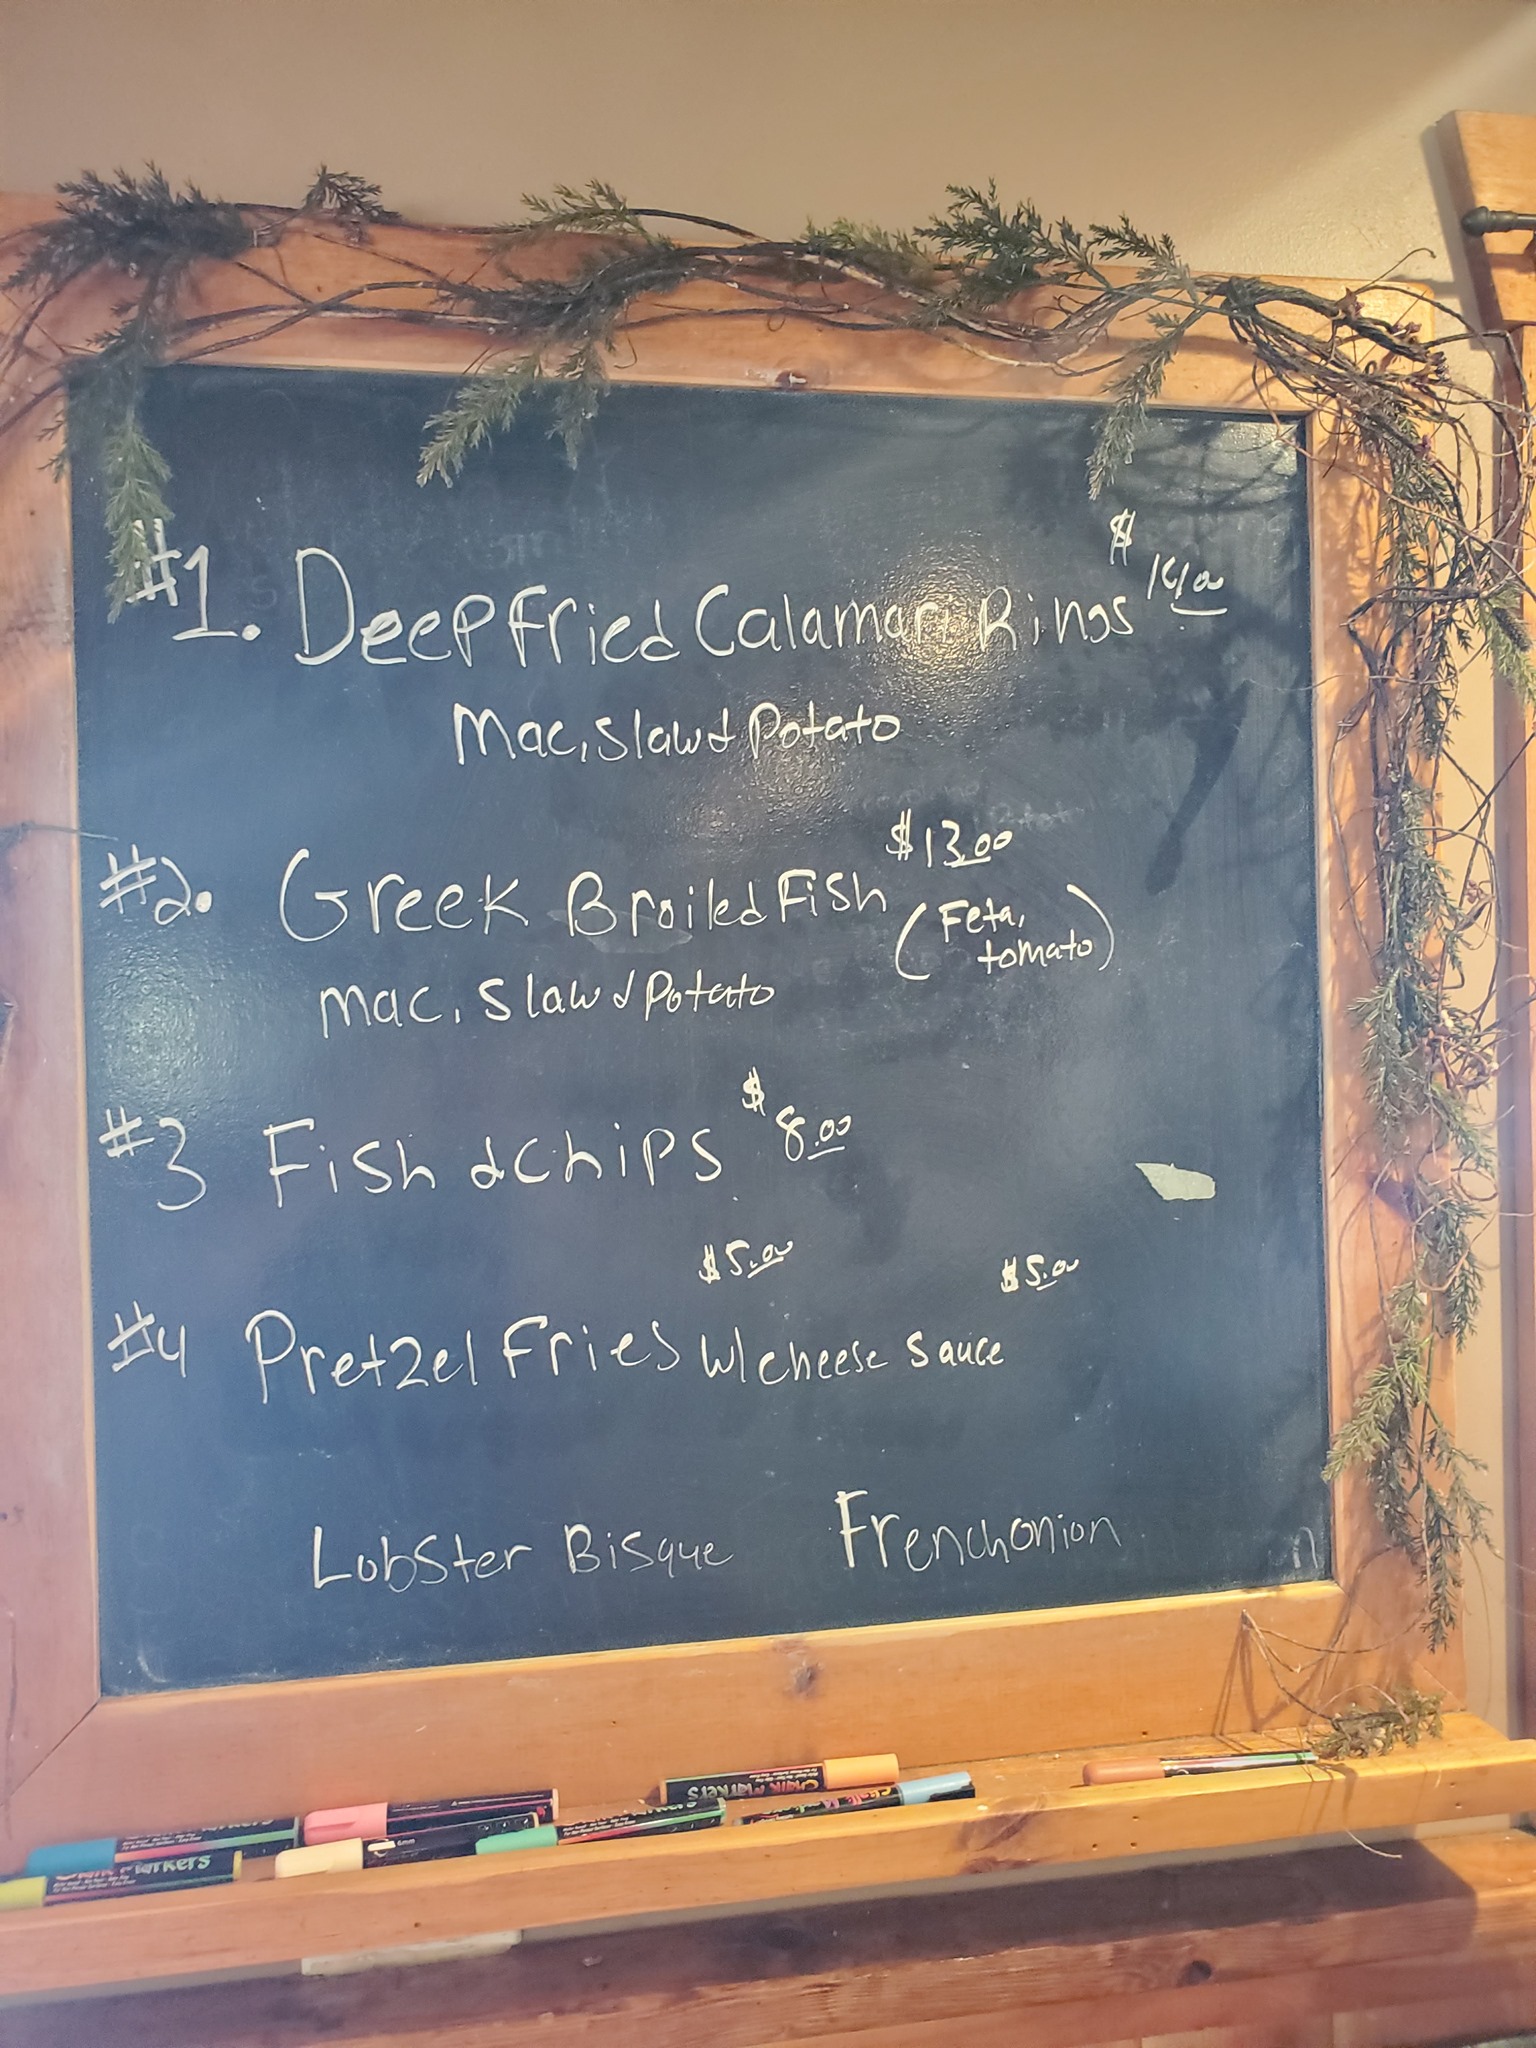 #1. Deep Fried Calamari Rings $14.00
Mac, Slaw & Potato
#2. Greek Broiled Fish $13.00
(Feta, tomato)
Mac, Slaw & Potato
#3 Fish & Chips $8.00
$5.00 $5.00
#4 Pretzel Fries w/cheese sauce
Lobster Bisque French onion
Chalk Markers
Chalk Markers